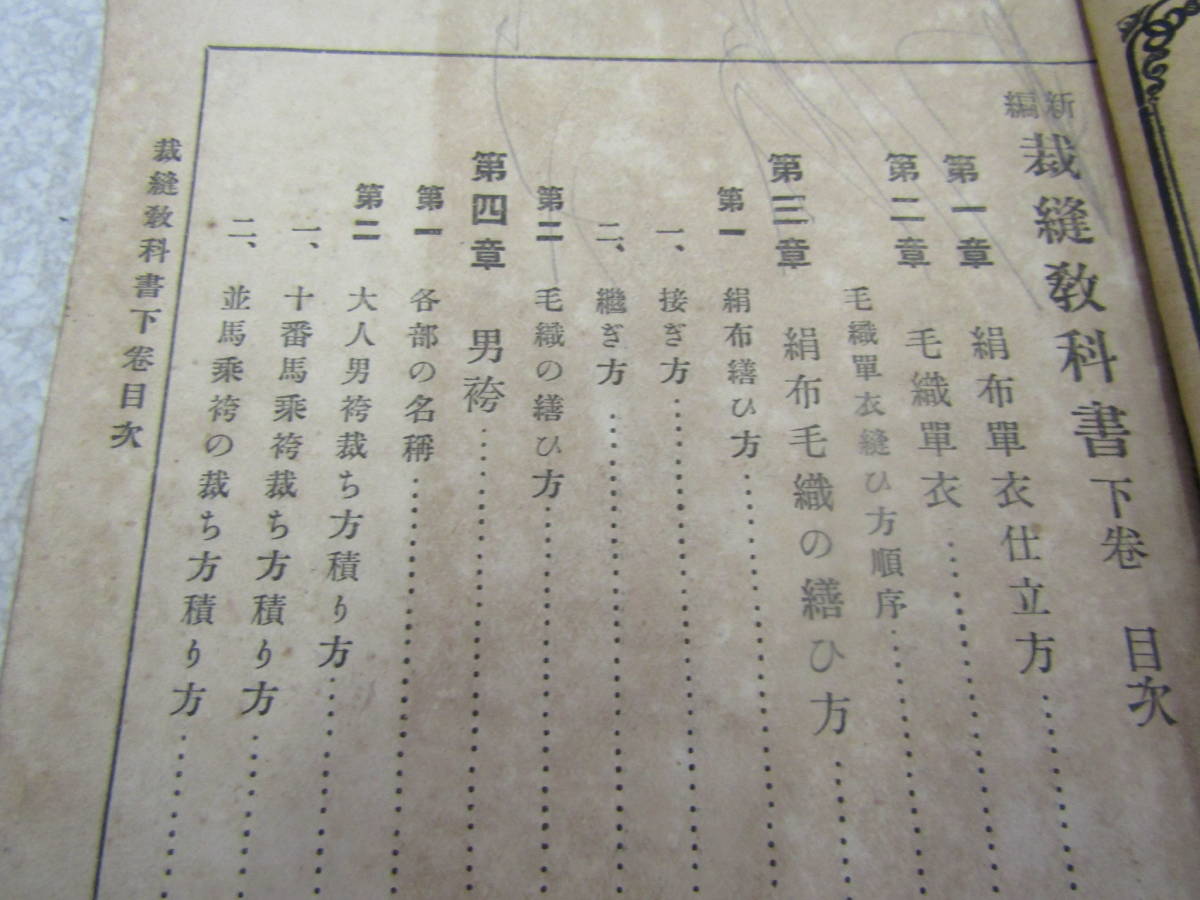 新編 裁縫敎科書 下卷 目次
第一章 絹布單衣仕立方
第二章 毛織單衣
毛織單衣縫ひ方順序
第三章 絹布毛織の繕ひ方
第一 絹布繕ひ方
一、接ぎ方
二、繼ぎ方
第二 毛織の繕ひ方
第四章 男袴
第一 各部の名稱
第二 大人男袴裁ち方積り方
一、十番馬乘袴裁ち方積り方
二、並馬乘袴の裁ち方積り方
裁縫敎科書下卷目次